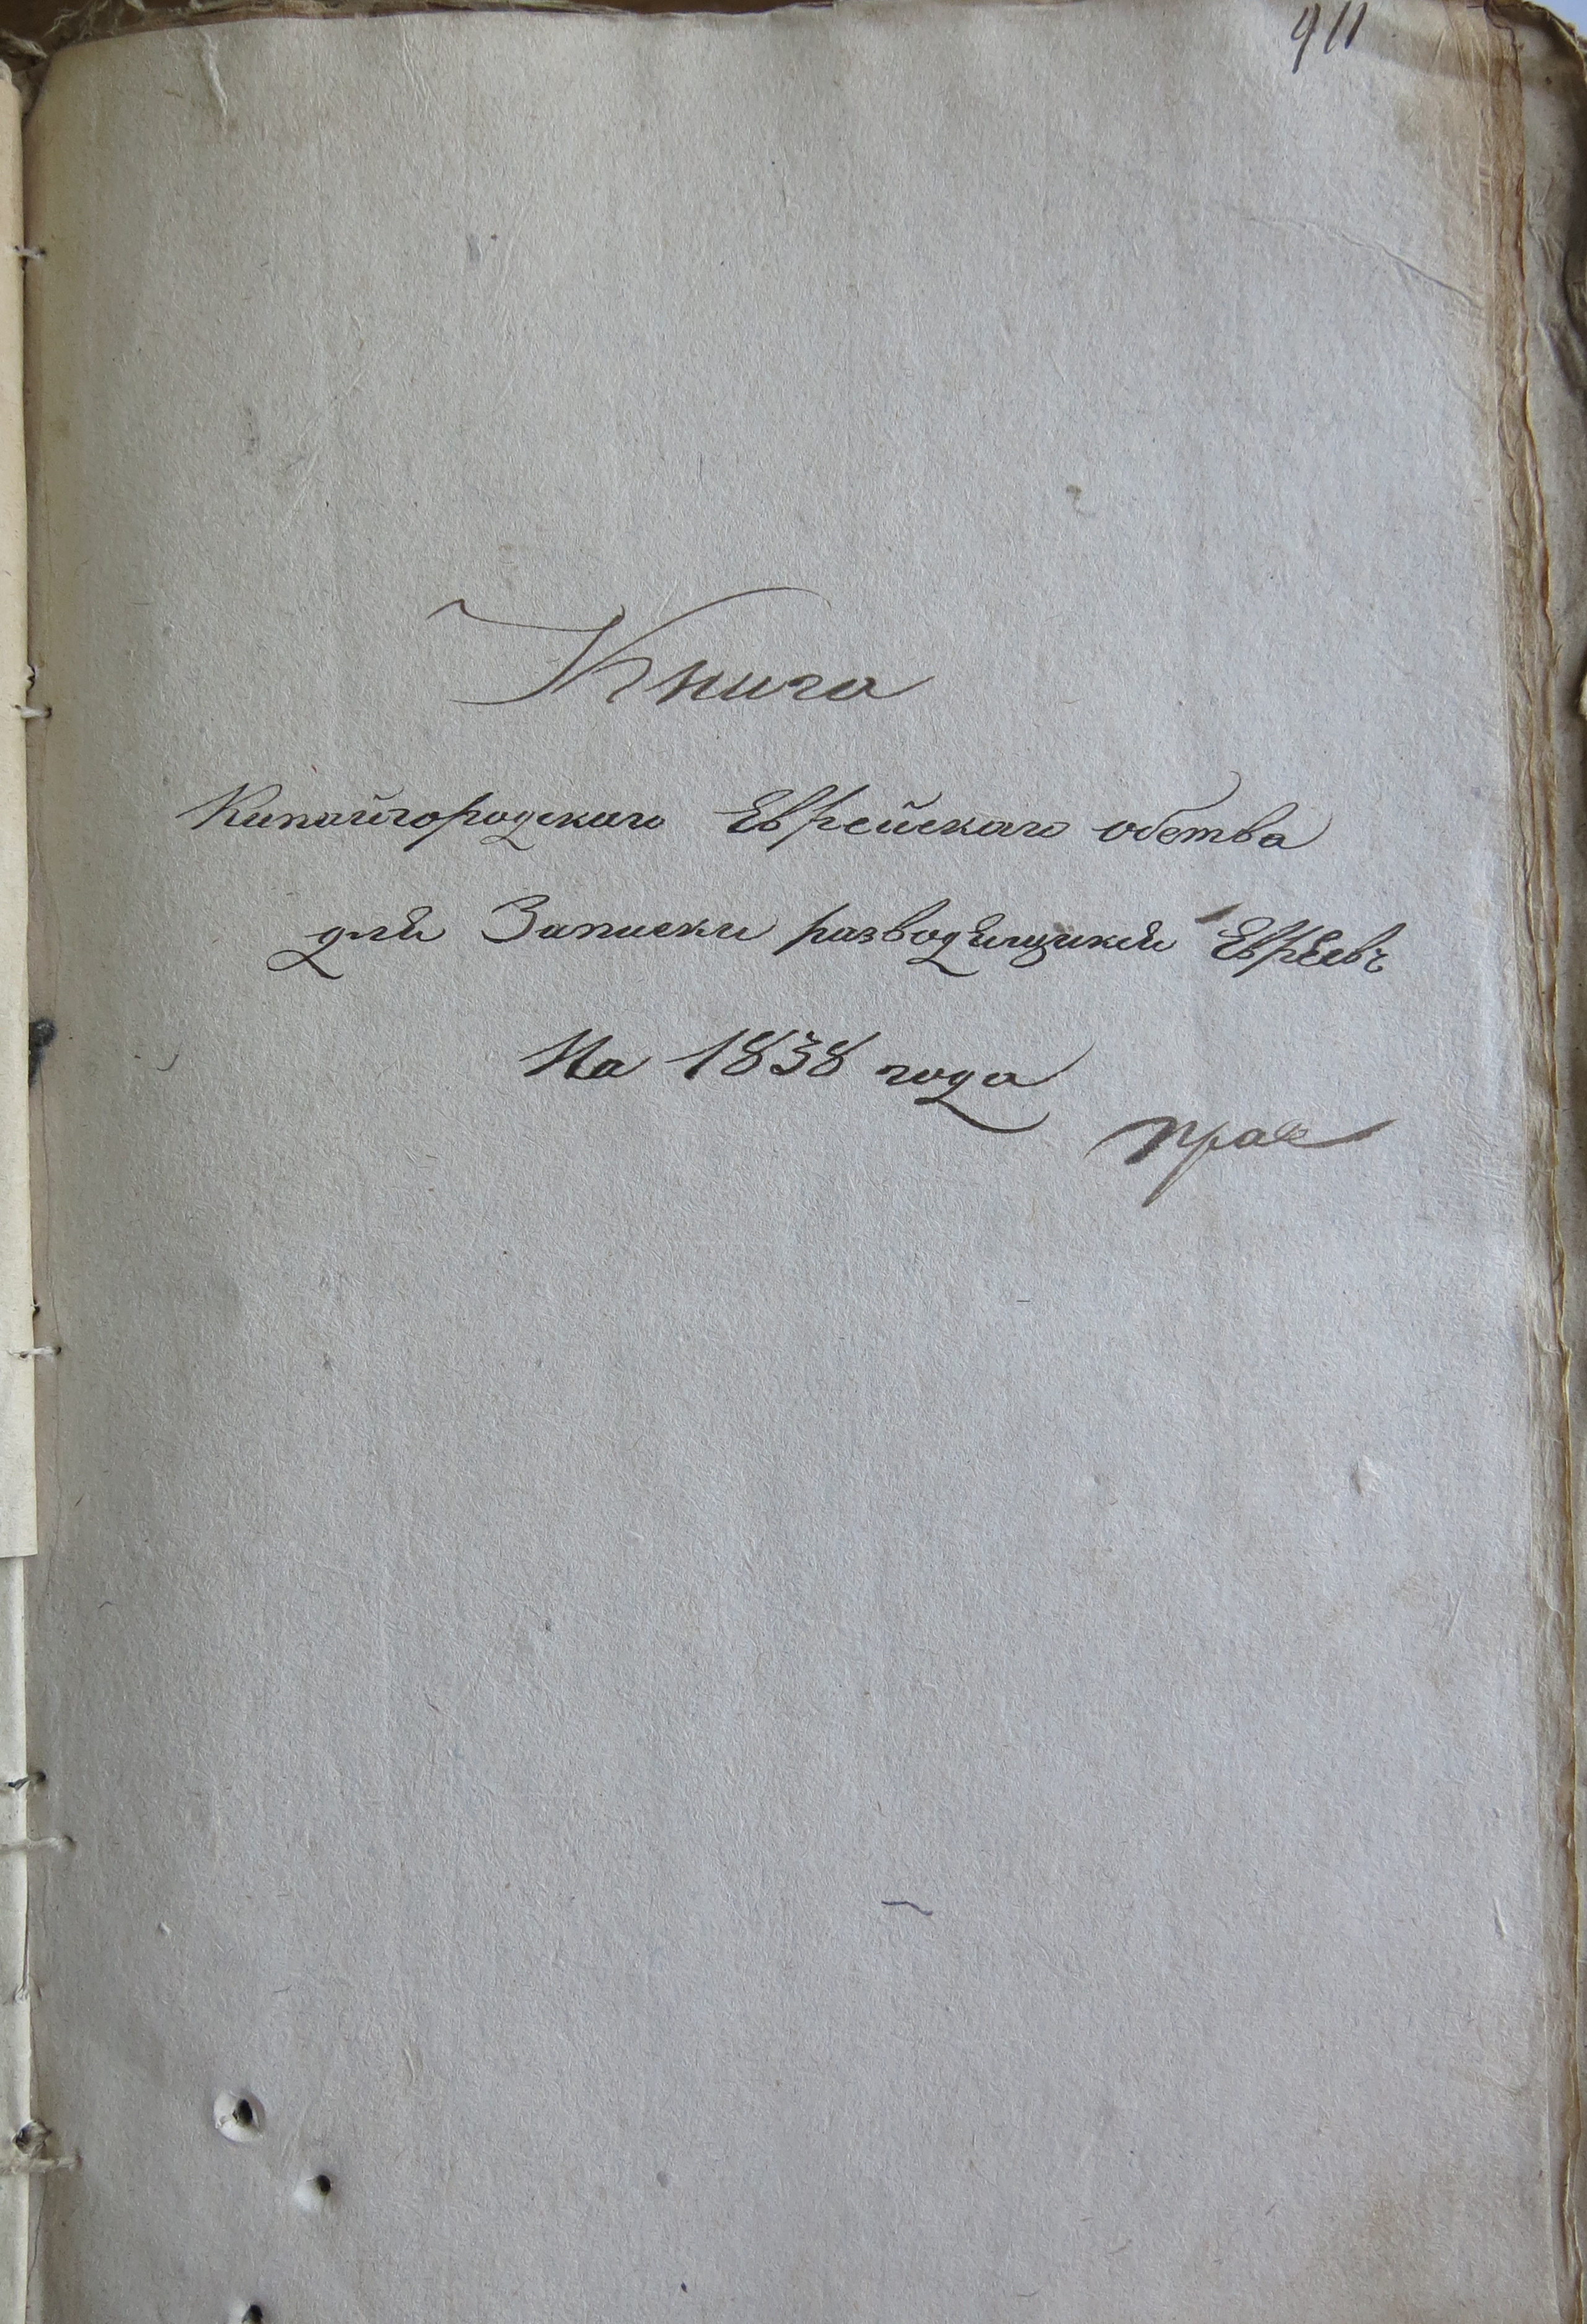 911
Книга
Китайгородскаго Еврейскаго обства
для Записки разводящихся Евреевъ
На 1838 года